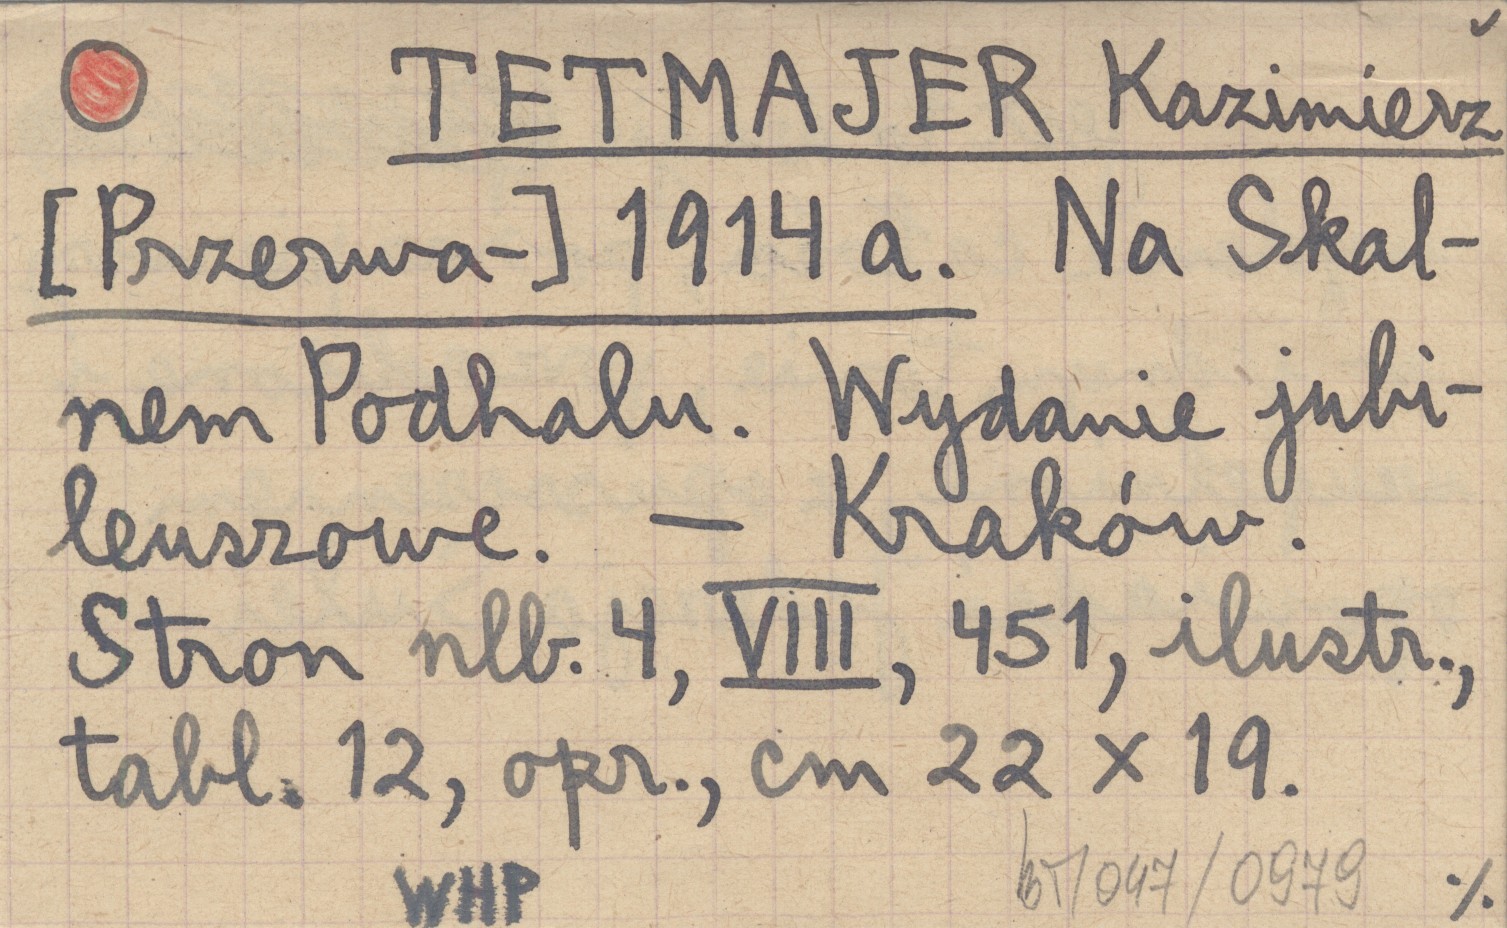 TETMAJER Kazimierz
[Przerwa-] 1914 a. Na Skal-
nem Podhalu. Wydanie jubi-
leuszowe. — Kraków.
Stron nlb. 4, VIII, 451, ilustr.,
tabl. 12, opr., cm 22 x 19.
WHP /047/0979 ./.